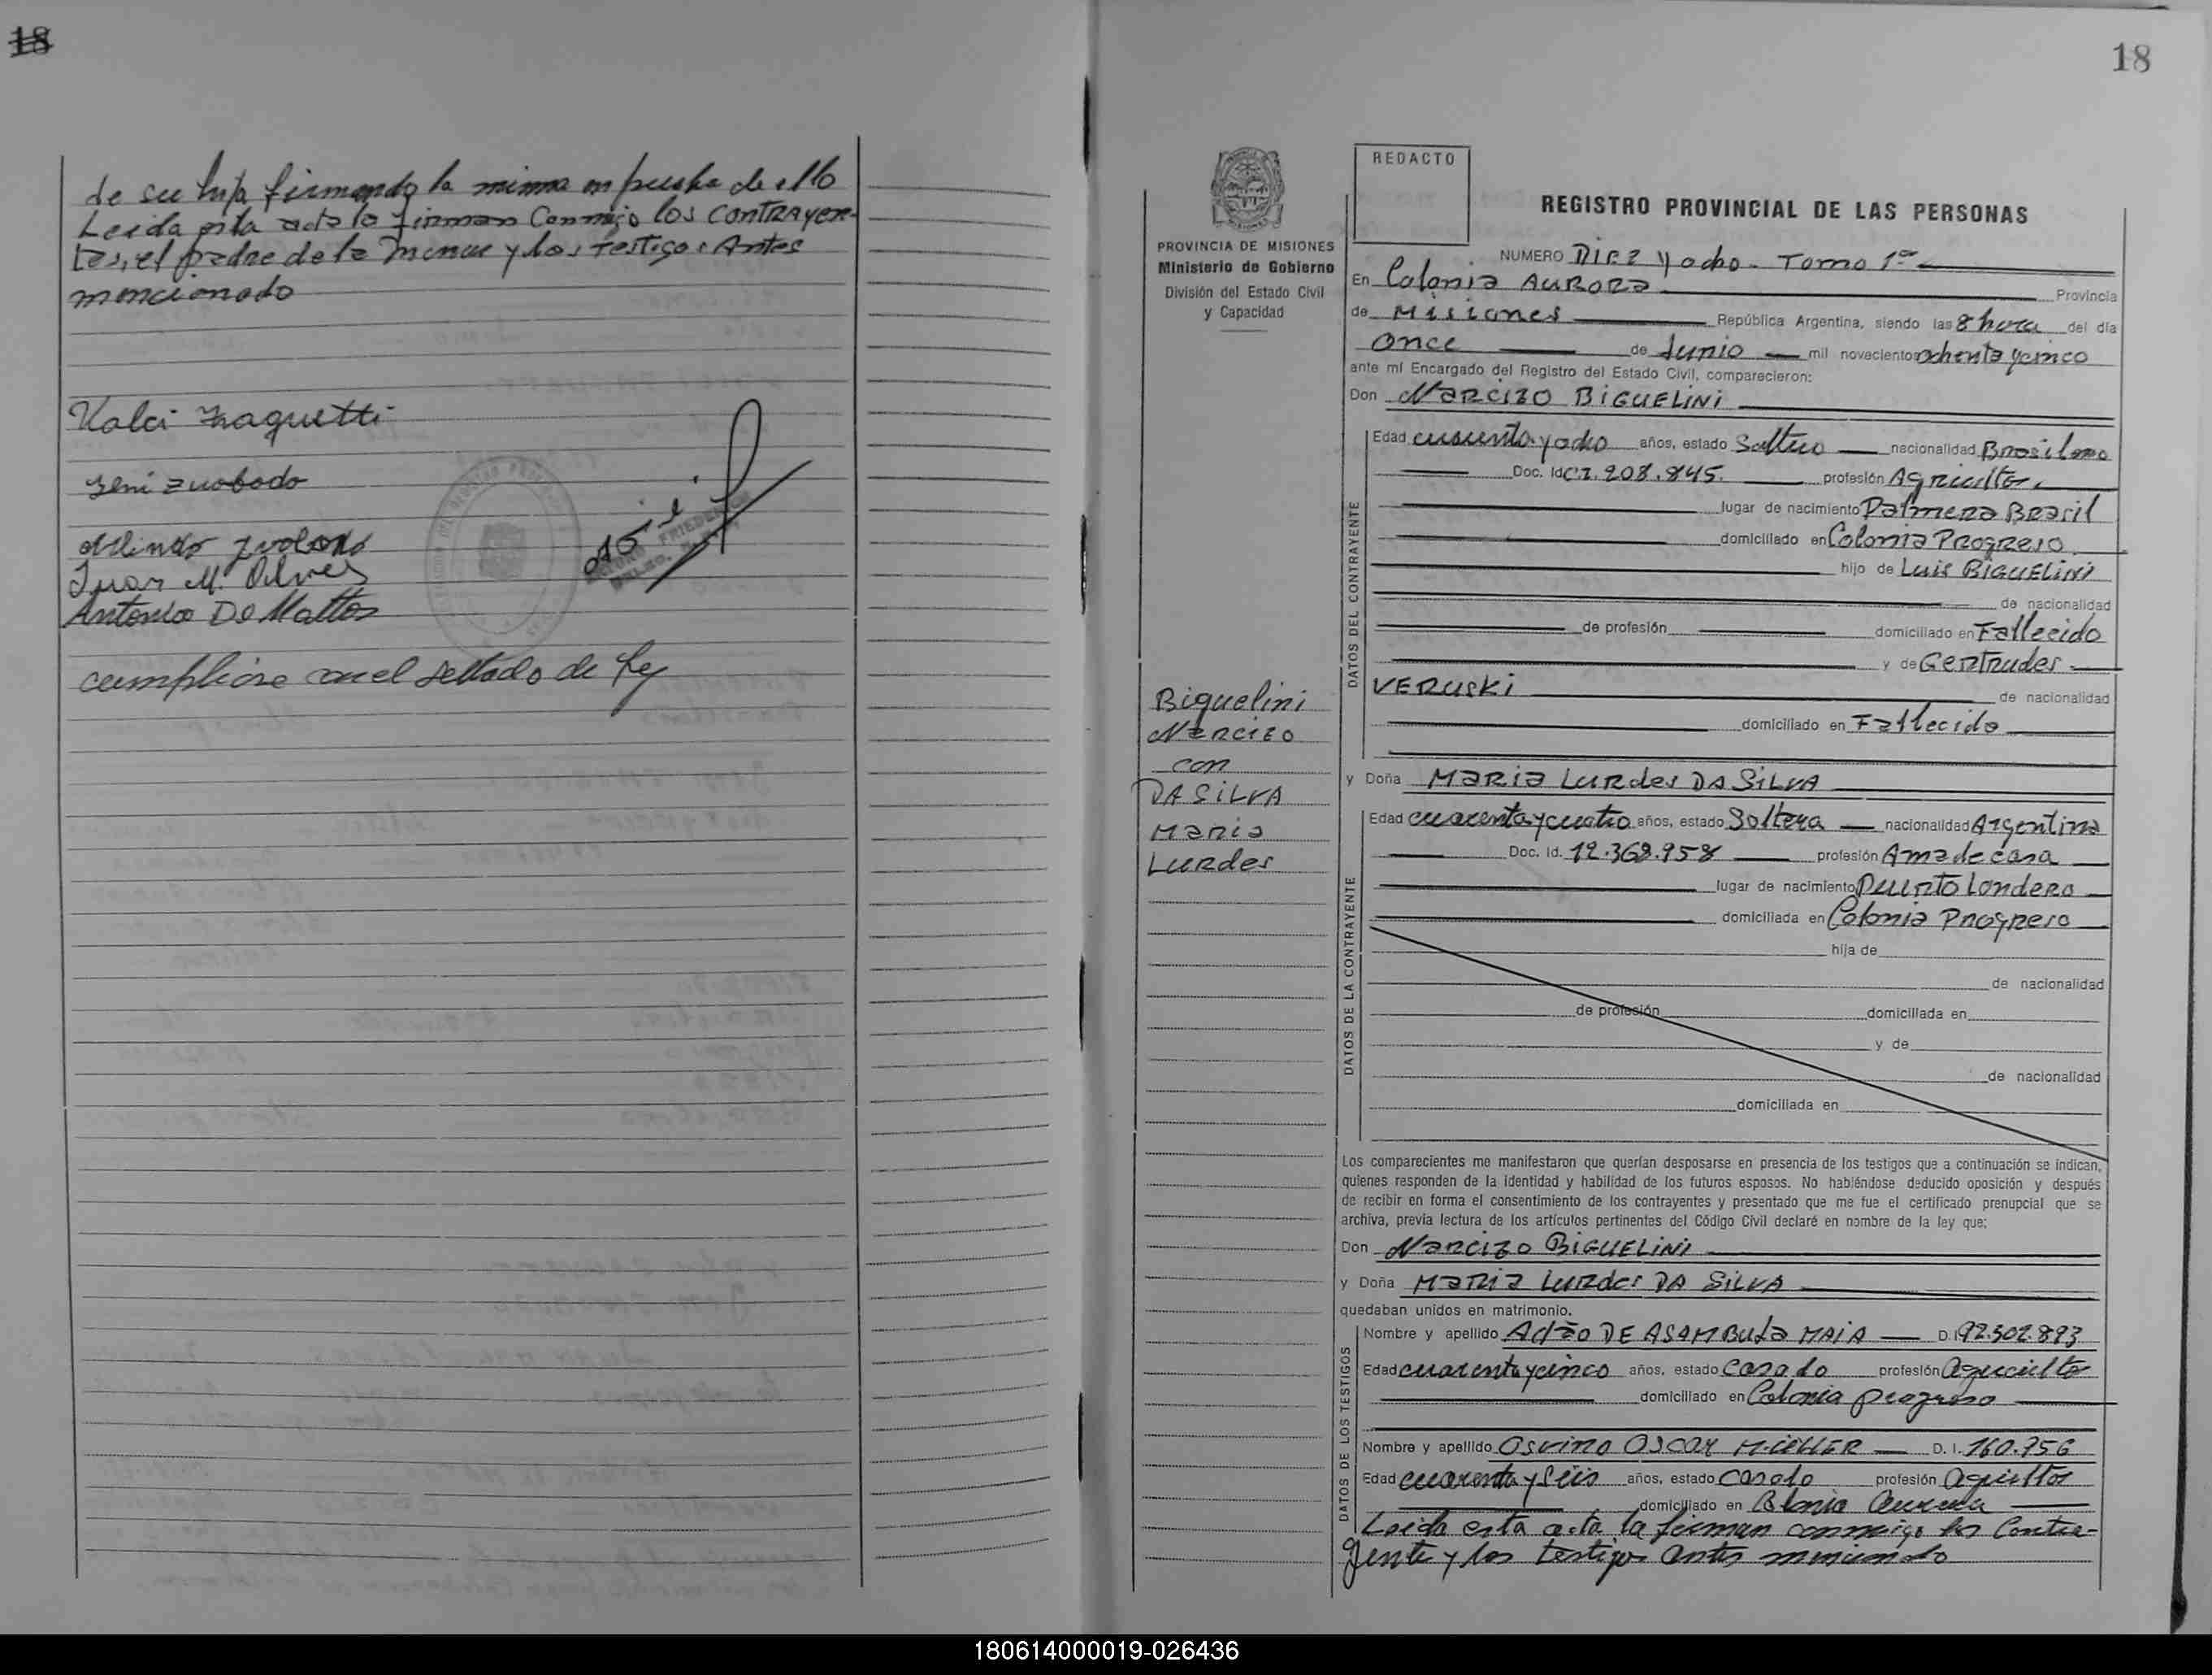 18
de su hija firmando la misma en prueba de ello
Leida esta acta la firman conmigo los contrayen-
tes, el padre de la menor y los testigos Antes
mencionado
Valci
Juan M. Alves
Antonio De Mattos
cumpliose con el sellado de Ley
18
REDACTO
PROVINCIA DE MISIONES
Ministerio de Gobierno
División del Estado Civil
y Capacidad
REGISTRO PROVINCIAL DE LAS PERSONAS
NUMERO Diez y ocho - Tomo 1º
En Colonia AURORA Provincia
de Misiones República Argentina, siendo las 8 hora del día
Once de Junio mil novecientos ochenta y cinco
ante mí Encargado del Registro del Estado Civil, comparecieron:
Don NARCIZO BIGUELINI
DATOS DEL CONTRAYENTE
Edad cuarenta y ocho años, estado Soltero nacionalidad Brasilero
Doc. Id C.I. 208.845. profesión Agricultor
lugar de nacimiento Palmera Brasil
domiciliado en Colonia Progreso
hijo de Luis BIGUELINI
de nacionalidad
de profesión domiciliado en Fallecido
y de Gertrudes
VERUSKI de nacionalidad
domiciliado en Fallecida
Biguelini
Narcizo
con
DA SILVA
Maria
Lurdes
y Doña Maria Lurdes DA SILVA
DATOS DE LA CONTRAYENTE
Edad cuarenta y cuatro años, estado Soltera nacionalidad Argentina
Doc. Id. 12.368.958 profesión Ama de casa
lugar de nacimiento Puerto Londero
domiciliada en Colonia Progreso
hija de
de nacionalidad
de profesión domiciliada en
y de
de nacionalidad
domiciliada en
Los comparecientes me manifestaron que querían desposarse en presencia de los testigos que a continuación se indican,
quienes responden de la identidad y habilidad de los futuros esposos. No habiéndose deducido oposición y después
de recibir en forma el consentimiento de los contrayentes y presentado que me fue el certificado prenupcial que se
archiva, previa lectura de los artículos pertinentes del Código Civil declaré en nombre de la ley que:
Don Narcizo BIGUELINI
y Doña Maria Lurdes DA SILVA
quedaban unidos en matrimonio.
DATOS DE LOS TESTIGOS
Nombre y apellido Adão DE ASAMBUJA MAIA D.I. 92.502.893
Edad cuarenta y cinco años, estado casado profesión agricultor
domiciliado en Colonia progreso
Nombre y apellido Osvino OSCAR D. I. 160.756
Edad cuarenta y seis años, estado casado profesión agricultor
domiciliado en Colonia Aurora
Leida esta acta la firman conmigo los Contra-
yente y los testigos antes mencionado
180614000019-026436